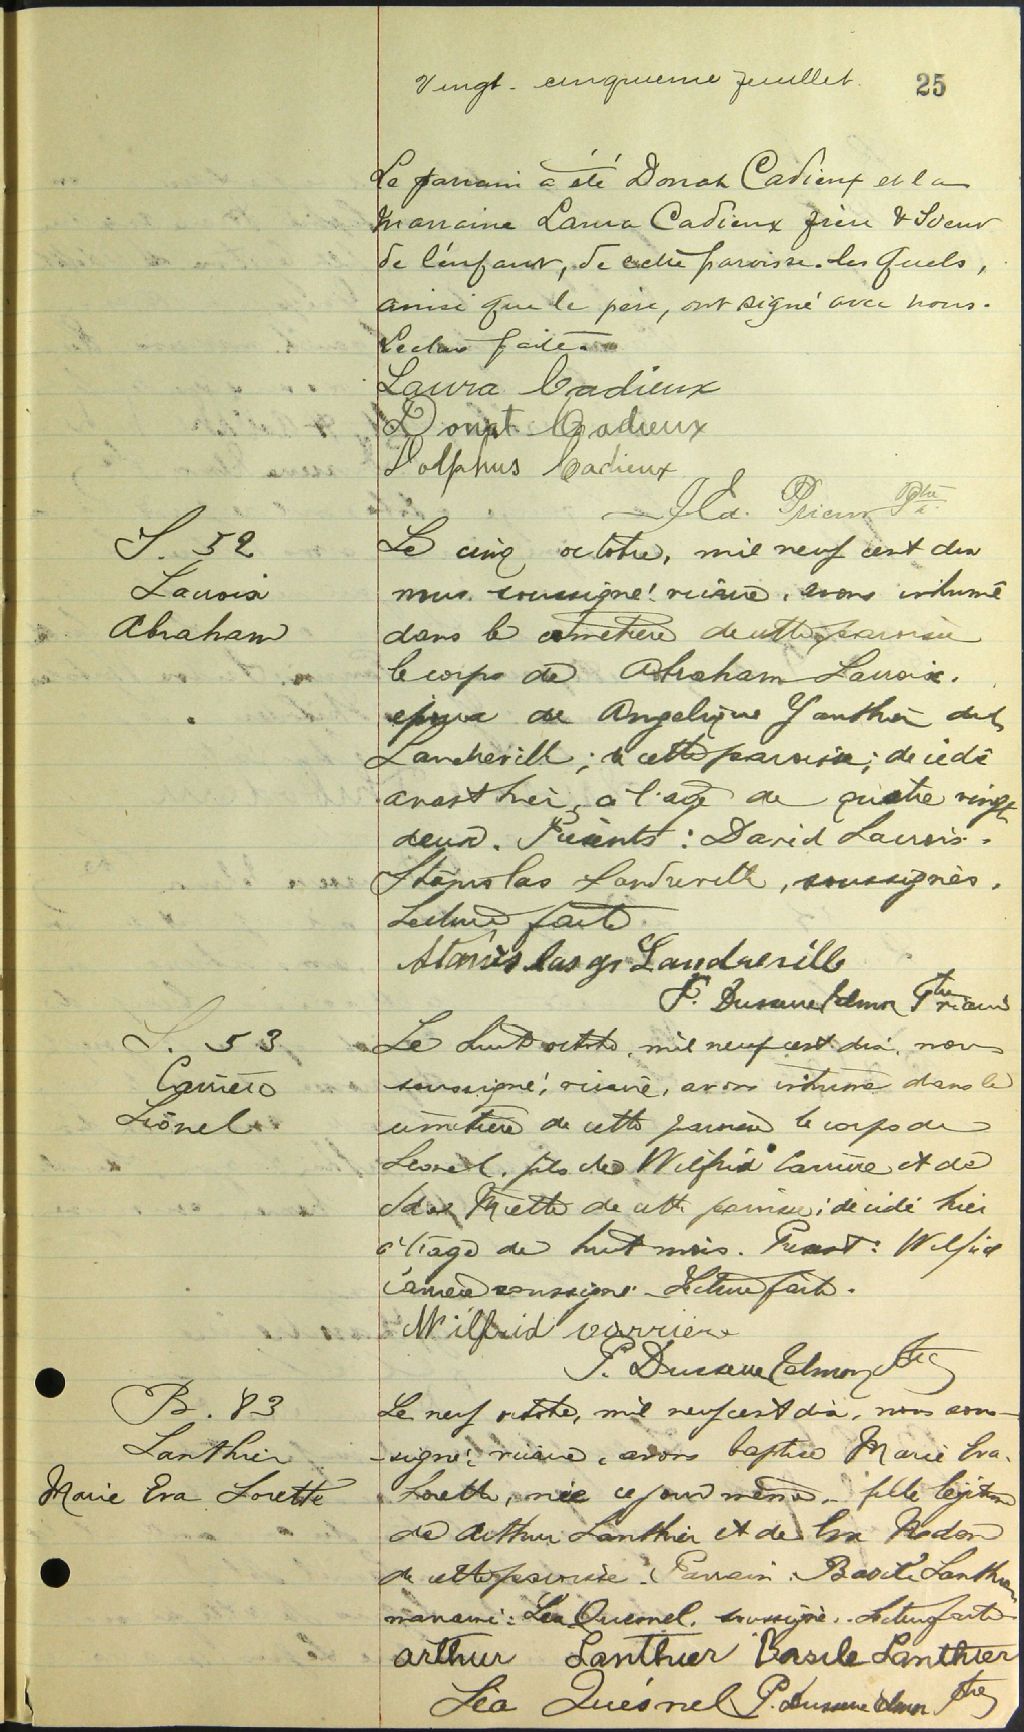 Vingt-cinquième feuillet. 25
Le parrain a été Donat Cadieux et la
marraine Laura Cadieux frère & Soeur
de l'enfant, de cette paroisse. les quels,
ainsi que le père, ont signé avec nous.
Lecture faite.
Laura Cadieux
Donat Cadieux
Dolphus Cadieux
Prieur Ptre
S. 52
Lacroix
Abraham
Le cinq octobre, mil neuf cent dix
nous soussigné vicaire, avons inhumé
dans le cimetière de cette paroisse
le corps de Abraham Lacroix.
époux de Angelique Ganthier dit
Landreville; de cette paroisse; décédé
avant hier, a l'age de quatre vingt
deux. Présents: David Lacroix.
Stanislas Landreville, soussignés.
Lecture faite
Stanislas Landreville
Ptre vicaire
S. 53
Carrière
Lionel
Le huit octobre, mil neuf cent dix, nous
soussigné, vicaire, avons inhumé dans le
cimetière de cette paroisse le corps de
Leonel, fils de Wilfrid Carrière et de
de cette paroisse; décédé hier
à l'age de huit mois. Présent: Wilfrid
Carrière soussigné. Lecture faite.
Wilfrid Carriere
Ptre
B. 83
Lanthier
Marie Eva Lorette
Le neuf octobre, mil neuf cent dix, nous sous-
-signé, vicaire, avons baptisé Marie Eva
Lorette, née ce jour même, fille légitime
de Arthur Lanthier et de Eva Nadon
de cette paroisse. Parrain: Basile Lanthier
marraine: Léa Quesnel. soussignés. Lecture faite
Arthur Lanthier Basile Lanthier
Léa Quésnel Ptre